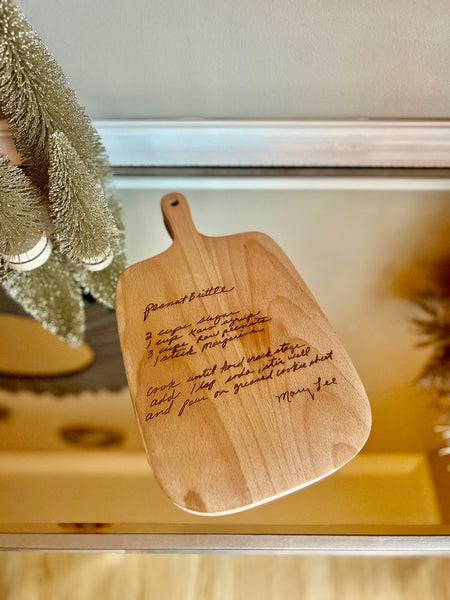 Peanut Brittle
2 cups sugar
1 cup Karo syrup
3 cups raw peanuts
1 stick Margarine
Cook until hard crack stage
add 1 tsp soda, stir well
and pour on greased cookie sheet
Mary Lee